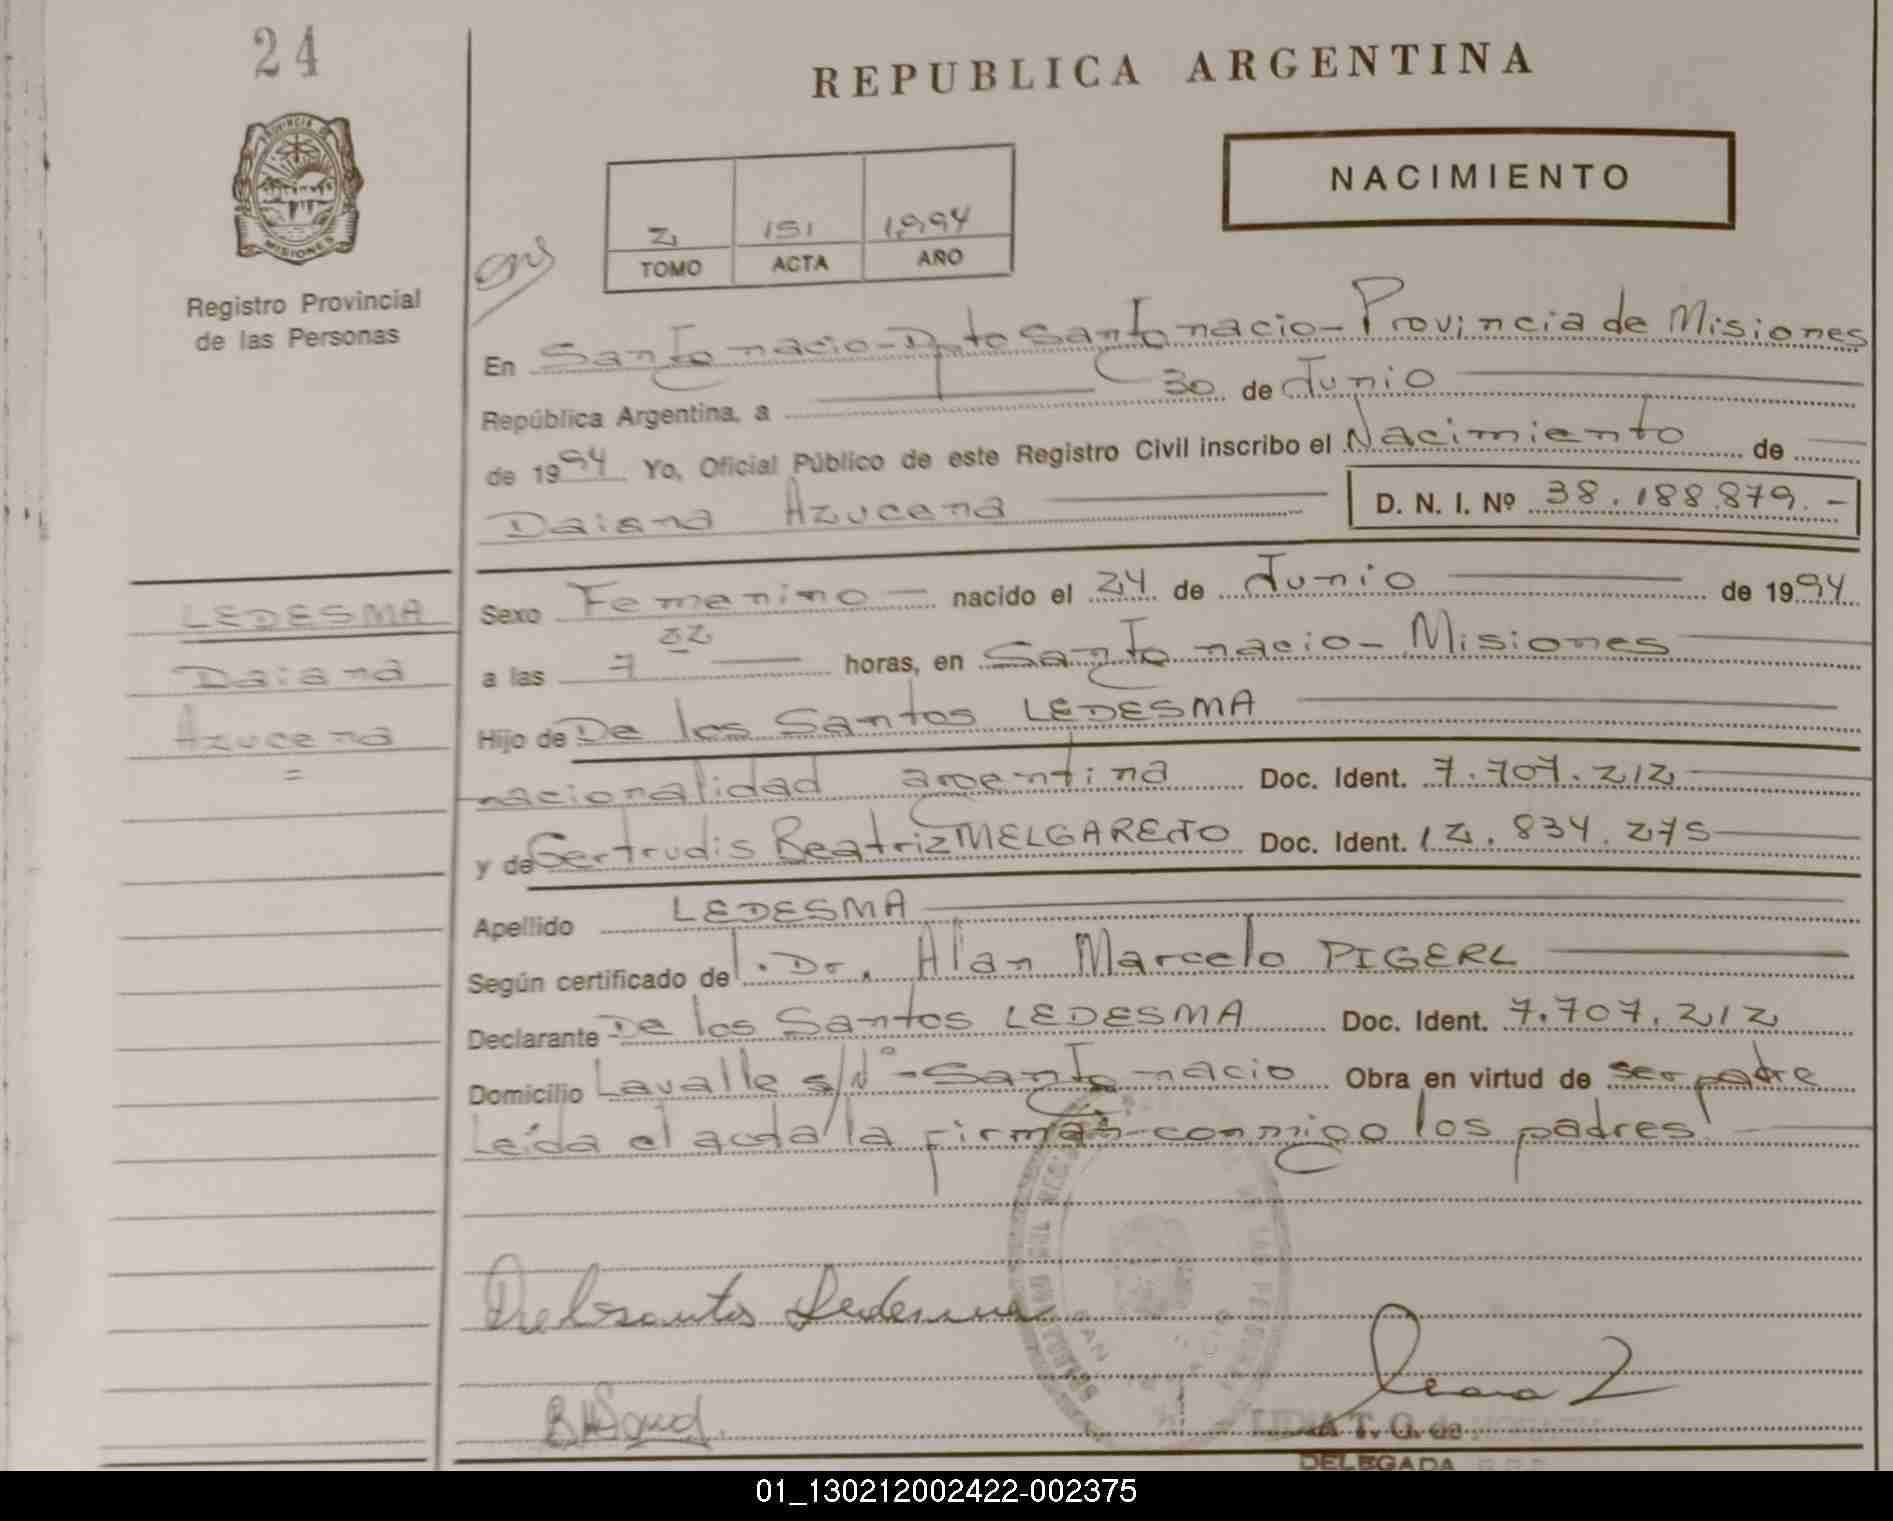 24
REPUBLICA ARGENTINA
PROVINCIA DE
MISIONES
NACIMIENTO
2 151 1,994
TOMO ACTA AÑO
Registro Provincial
de las Personas
En San Ignacio-Dpto San Ignacio-Provincia de Misiones
República Argentina, a 30 de Junio
de 1994 Yo, Oficial Público de este Registro Civil inscribo el Nacimiento de
Daiana Azucena D. N. I. Nº 38.188.879.-
LEDESMA
Daiana
Azucena
=
Sexo Femenino nacido el 24 de Junio de 1994
a las 7 horas, en San Ignacio-Misiones
Hijo de De los Santos LEDESMA
nacionalidad argentina Doc. Ident. 7.707.212
y de Gertrudis Beatriz MELGAREJO Doc. Ident. 12.834.275
Apellido LEDESMA
Según certificado del. Dr. Alan Marcelo PIGERL
Declarante De los Santos LEDESMA Doc. Ident. 7.707.212
Domicilio Lavalle s/Nº-San Ignacio Obra en virtud de ser padre
Leída el acta la firman conmigo los padres
Delosantos Ledesma
LIDIA T. G. de
DELEGADA
01_130212002422-002375